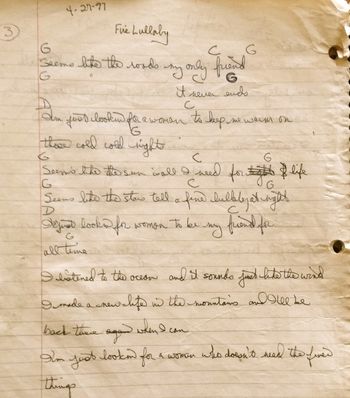 4-27-97
3
Fire Lullaby
G C G
Seems like the roads my only friend
G C G
it never ends
D C
I'm just lookin for a woman to keep me warm on
G
those cold cold nights
G C G
Seems like the sun is all I need for life
G C G
Seems like the stars tell a fine lullaby at night
D C
just lookin for woman to be my friend for
G
all time
I listened to the ocean and it sounds just like the wind
I made a new life in the mountains and I'll be
back there again when I can
I'm just lookin for a woman who doesn't need the finer
things